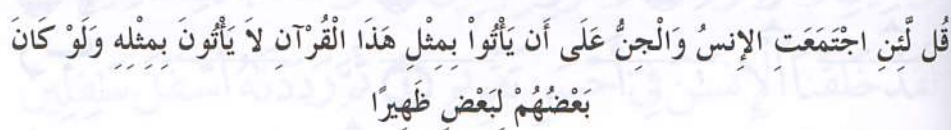 قُل لَّئِنِ اجْتَمَعَتِ الإِنسُ وَالْجِنُّ عَلَى أَن يَأْتُواْ بِمِثْلِ هَذَا الْقُرْآنِ لاَ يَأْتُونَ بِمِثْلِهِ وَلَوْ كَانَ
بَعْضُهُمْ لِبَعْضٍ ظَهِيرًا